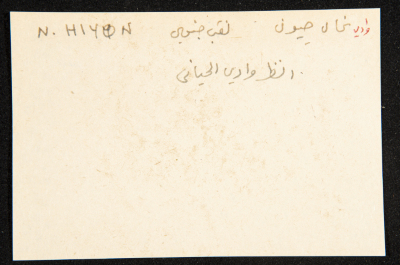 وادي نحال حيون نقب جنوبي N. HIYON
انظر وادي الحياني